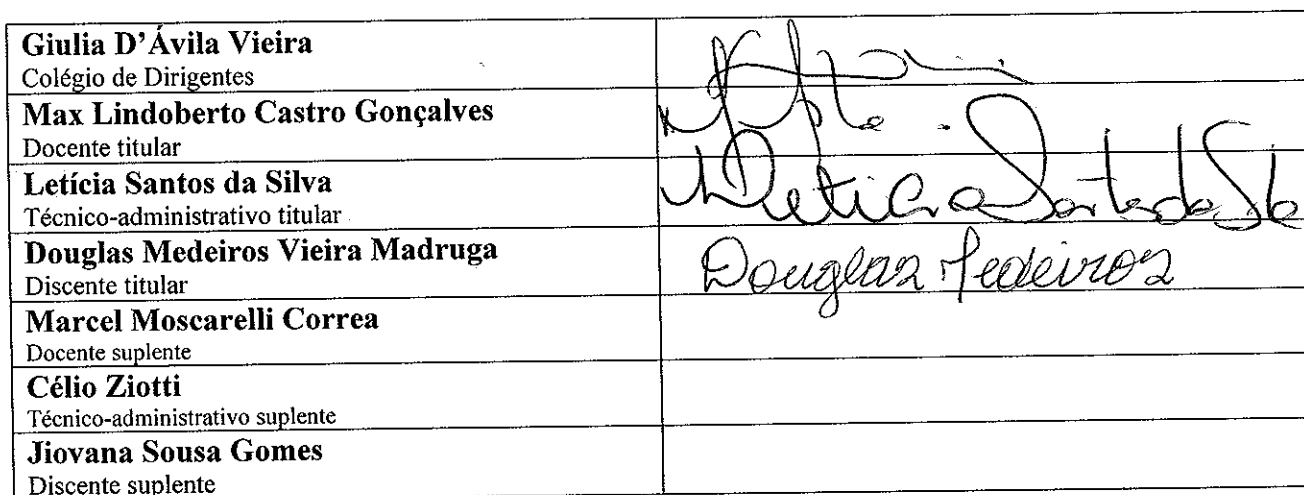 Giulia D'Ávila Vieira
Colégio de Dirigentes
Max Lindoberto Castro Gonçalves
Docente titular
Letícia Santos da Silva
Técnico-administrativo titular
Leticia Santos da Sla
Douglas Medeiros Vieira Madruga
Discente titular
Douglas Medeiros
Marcel Moscarelli Correa
Docente suplente
Célio Ziotti
Técnico-administrativo suplente
Jiovana Sousa Gomes
Discente suplente